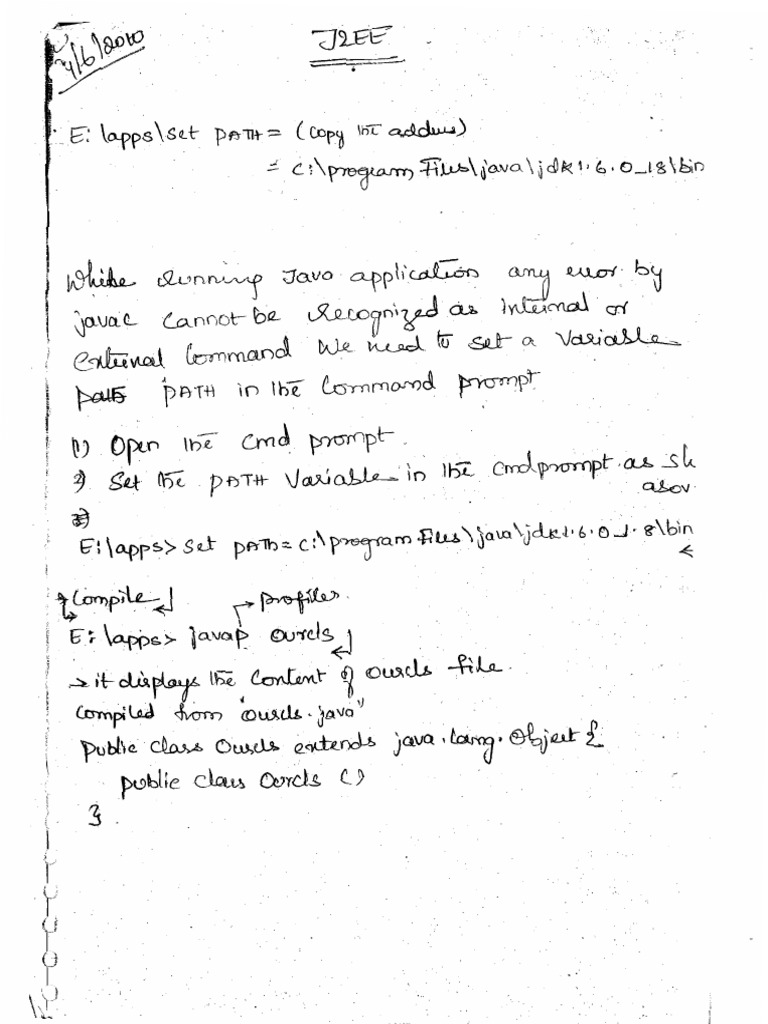 4/6/2010
J2EE
E:\apps\set PATH = (copy the address)
= C:\program Files\java\jdk1.6.0_18\bin
While running Java application any error by
javac cannot be recognized as internal or
external command we need to set a variable
PATH in the command prompt
(1) Open the cmd prompt.
2) Set the PATH Variable in the cmd prompt as
E:\apps> set PATH = C:\program Files\java\jdk1.6.0_1.8\bin
Compile
→ profiles.
E:\apps> javap ourcls
→ it displays the content of ourcls file.
Compiled from "ourcls.java"
public class Ourcls extends java.lang.Object {
public class Ourcls ()
}